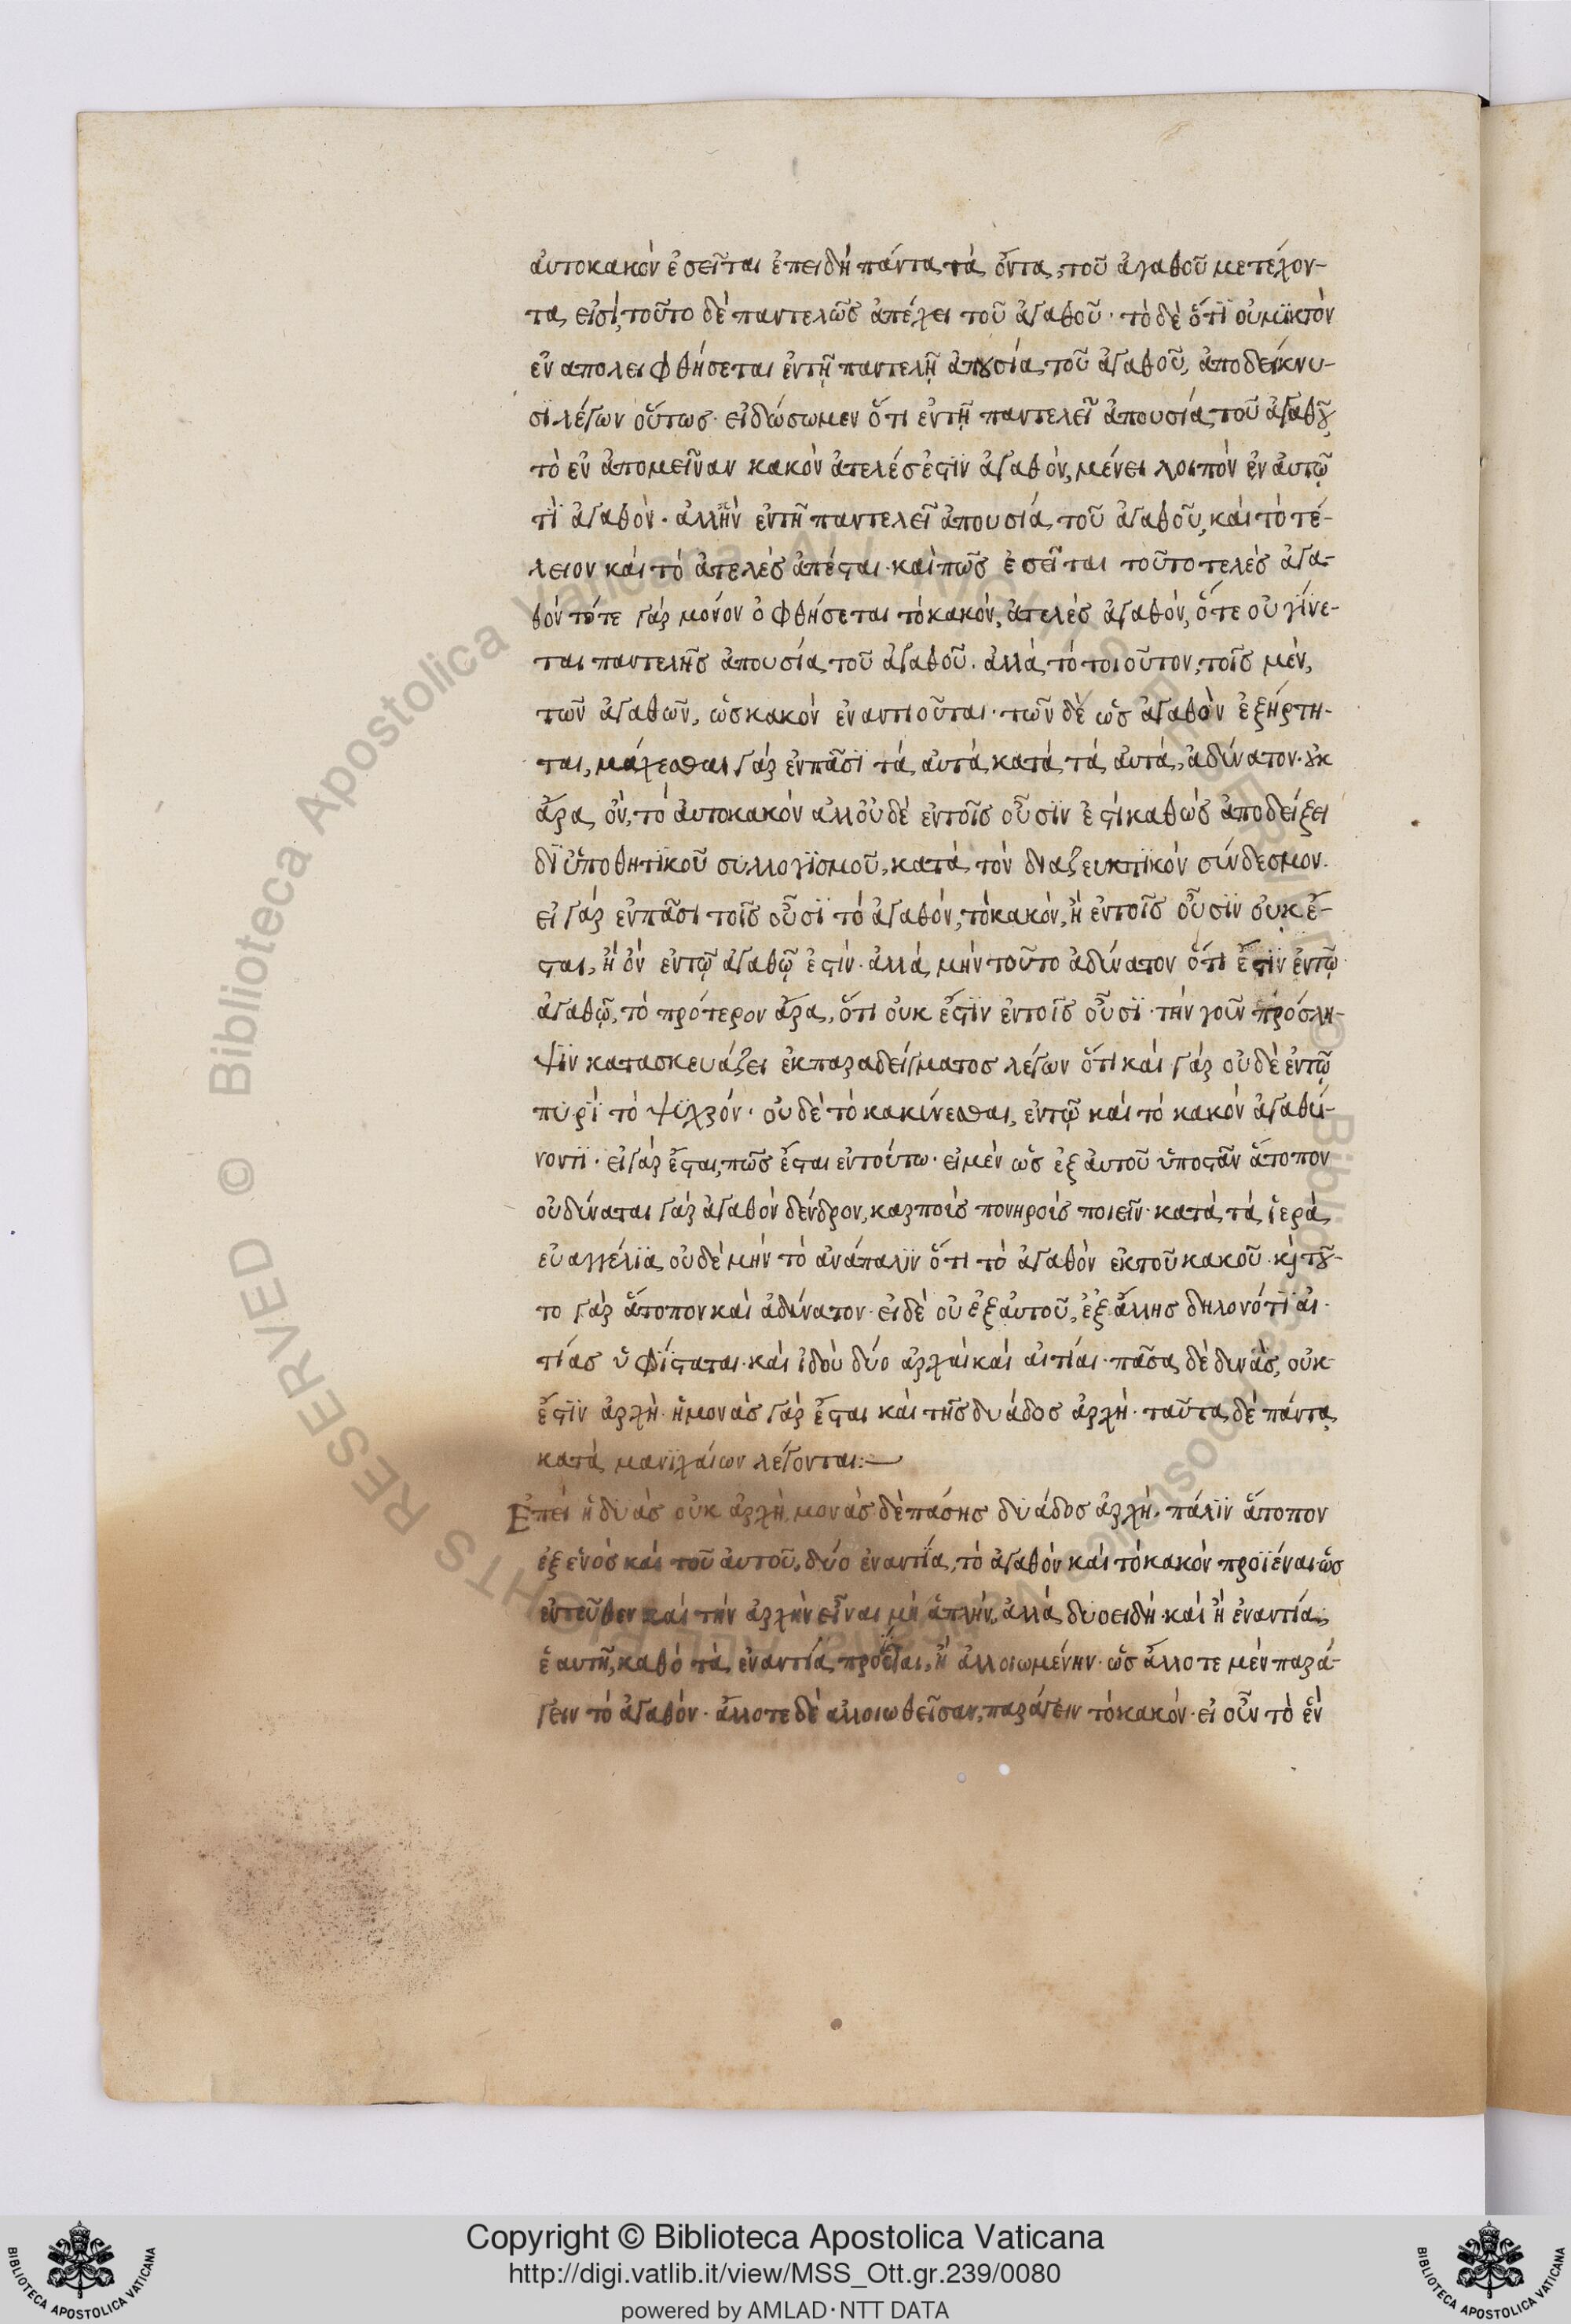 αὐτοκακὸν ἐσεῖται ἐπειδὴ πάντα τὰ ὄντα, τοῦ ἀγαθοῦ μετέχον-
τα εἰσί, τοῦτο δὲ παντελῶς ἀπέχει τοῦ ἀγαθοῦ· τὸ δὲ ὅτϊ οὐ μϊκτὸν
ἐν απολειφθήσεται ἐν τῇ παντελῇ ἀπουσία τοῦ ἀγαθοῦ, ἀποδείκνυ-
σϊ λέγων οὕτως· εἰ δώσωμεν ὅτι ἐν τῇ παντελεῖ ἀπουσία τοῦ ἀγαθοῦ
τὸ ἐν ἀπομεῖναν κακὸν ἀτελές ἐστϊν ἀγαθόν, μένει λοιπὸν ἐν ἀυτῷ
τϊ ἀγαθόν· ἀλλ' ἢν ἐν τῆ παντελεῖ ἀπουσία τοῦ ἀγαθοῦ, καὶ τὸ τέ-
λειον καὶ τὸ ἀτελὲς ἀπέσται· καὶ πῶς ἐσεῖται τοῦτο τελὲς ἀγα-
θόν τότε γὰρ μόνον ὀφθήσεται τὸ κακόν, ἀτελὲς ἀγαθόν, ὅτε οὐ γίνε-
ται παντελὴς ἀπουσία τοῦ ἀγαθοῦ. ἀλλὰ τὸ τοιοῦτον, τοῖς μὲν,
τῶν ἀγαθῶν, ὡς κακὸν ἐναντιοῦται· τῶν δὲ ὡς ἀγαθὸν ἐξήρτη-
ται, μάχεσθαι γὰρ ἐν πᾶσϊ τὰ αὐτὰ κατὰ τὰ αὐτὰ, ἀδύνατον· οὐκ
ἄρα ὄν, τὸ ἀυτοκακόν αλλ' οὐδὲ ἐν τοῖς οὖσϊν ἐστὶ καθὼς ἀποδείξει
δϊ ὑποθητϊκοῦ συλλογϊσμοῦ, κατὰ τὸν διαζευκτϊκὸν σύνδεσμον.
εἰ γὰρ ἐν πᾶσι τοῖς οὖσϊ τὸ ἀγαθόν, τὸ κακόν, ἢ ἐν τοῖς οὖσϊν οὐκ ἔ-
σται, ἢ ὂν ἐν τῷ ἀγαθῷ ἐστίν· ἀλλὰ μὴν τοῦτο ἀδύνατον ὅτι ἔστϊν ἐν τῷ
ἀγαθῷ, τὸ πρότερον ἄρα, ὅτι οὐκ ἔστϊν ἐν τοῖς οὖσϊ· τὴν γοῦν πρόσλη-
ψϊν κατασκευάζει ἐκ παραδείγματος λέγων ὅτι καὶ γὰρ οὐδὲ ἐν τῷ
πϋρϊ τὸ ψϋχρόν· οὐδὲ τὸ κακύνεσθαι, ἐν τῷ καὶ τὸ κακὸν ἀγαθύ-
νοντϊ· εἰ γὰρ ἔσται, πῶς ἔσται ἐν τούτω· εἰ μὲν ὡς ἐξ ἀυτοῦ ὑποστᾶν ἄτοπον
οὐ δύναται γὰρ ἀγαθὸν δένδρον, καρποὺς πονηροὺς ποιεῖν· κατὰ τὰ ἱερὰ
εὐαγγέλϊα, οὐδὲ μὴν τὸ ἀνάπαλϊν ὅτι τὸ ἀγαθὸν ἐκ τοῦ κακοῦ· καὶ τοῦ-
το γὰρ ἄτοπον καὶ ἀδύνατον· εἰ δὲ οὐ ἐξ ἀυτοῦ, ἐξ ἄλλης δηλονότϊ αἰ-
τίας ὑφίσταται· καὶ ἰδοὺ δύο ἀρχαὶ καὶ αἰτίαι· πᾶσα δὲ δυὰς, οὐκ
ἔστϊν ἀρχή· ἡ μονὰς γὰρ ἔσται καὶ τῆς δυάδος ἀρχή· ταῦτα δὲ πάντα
κατὰ μανϊχαίων λέγονται:—
Ἐπεὶ ἡ δϋὰς οὐκ ἀρχή, μονὰς δὲ πάσης δϋάδος ἀρχή. πάλϊν ἄτοπον
ἐξ ἑνὸς καὶ τοῦ ἀυτοῦ, δύο ἐναντία, τὸ ἀγαθὸν καὶ τὸ κακὸν προϊέναι ὡς
ἐντεῦθεν καὶ τὴν ἀρχὴν εἶναι μὴ ἁπλήν, ἀλλὰ δϋοειδῆ· καὶ ἢ ἐναντίαν
ἑαυτῆ, καθὸ τὰ ἐναντία προεῖται, ἢ ἀλλοιωμένην· ὡς ἄλλοτε μὲν παρά-
γειν τὸ ἀγαθόν· ἄλλοτε δὲ αλλοιωθεῖσαν, παράγειν τὸ κακόν· εἰ οὖν τὸ ἓν
Copyright © Biblioteca Apostolica Vaticana
http://digi.vatlib.it/view/MSS_Ott.gr.239/0080
powered by AMLAD·NTT DATA